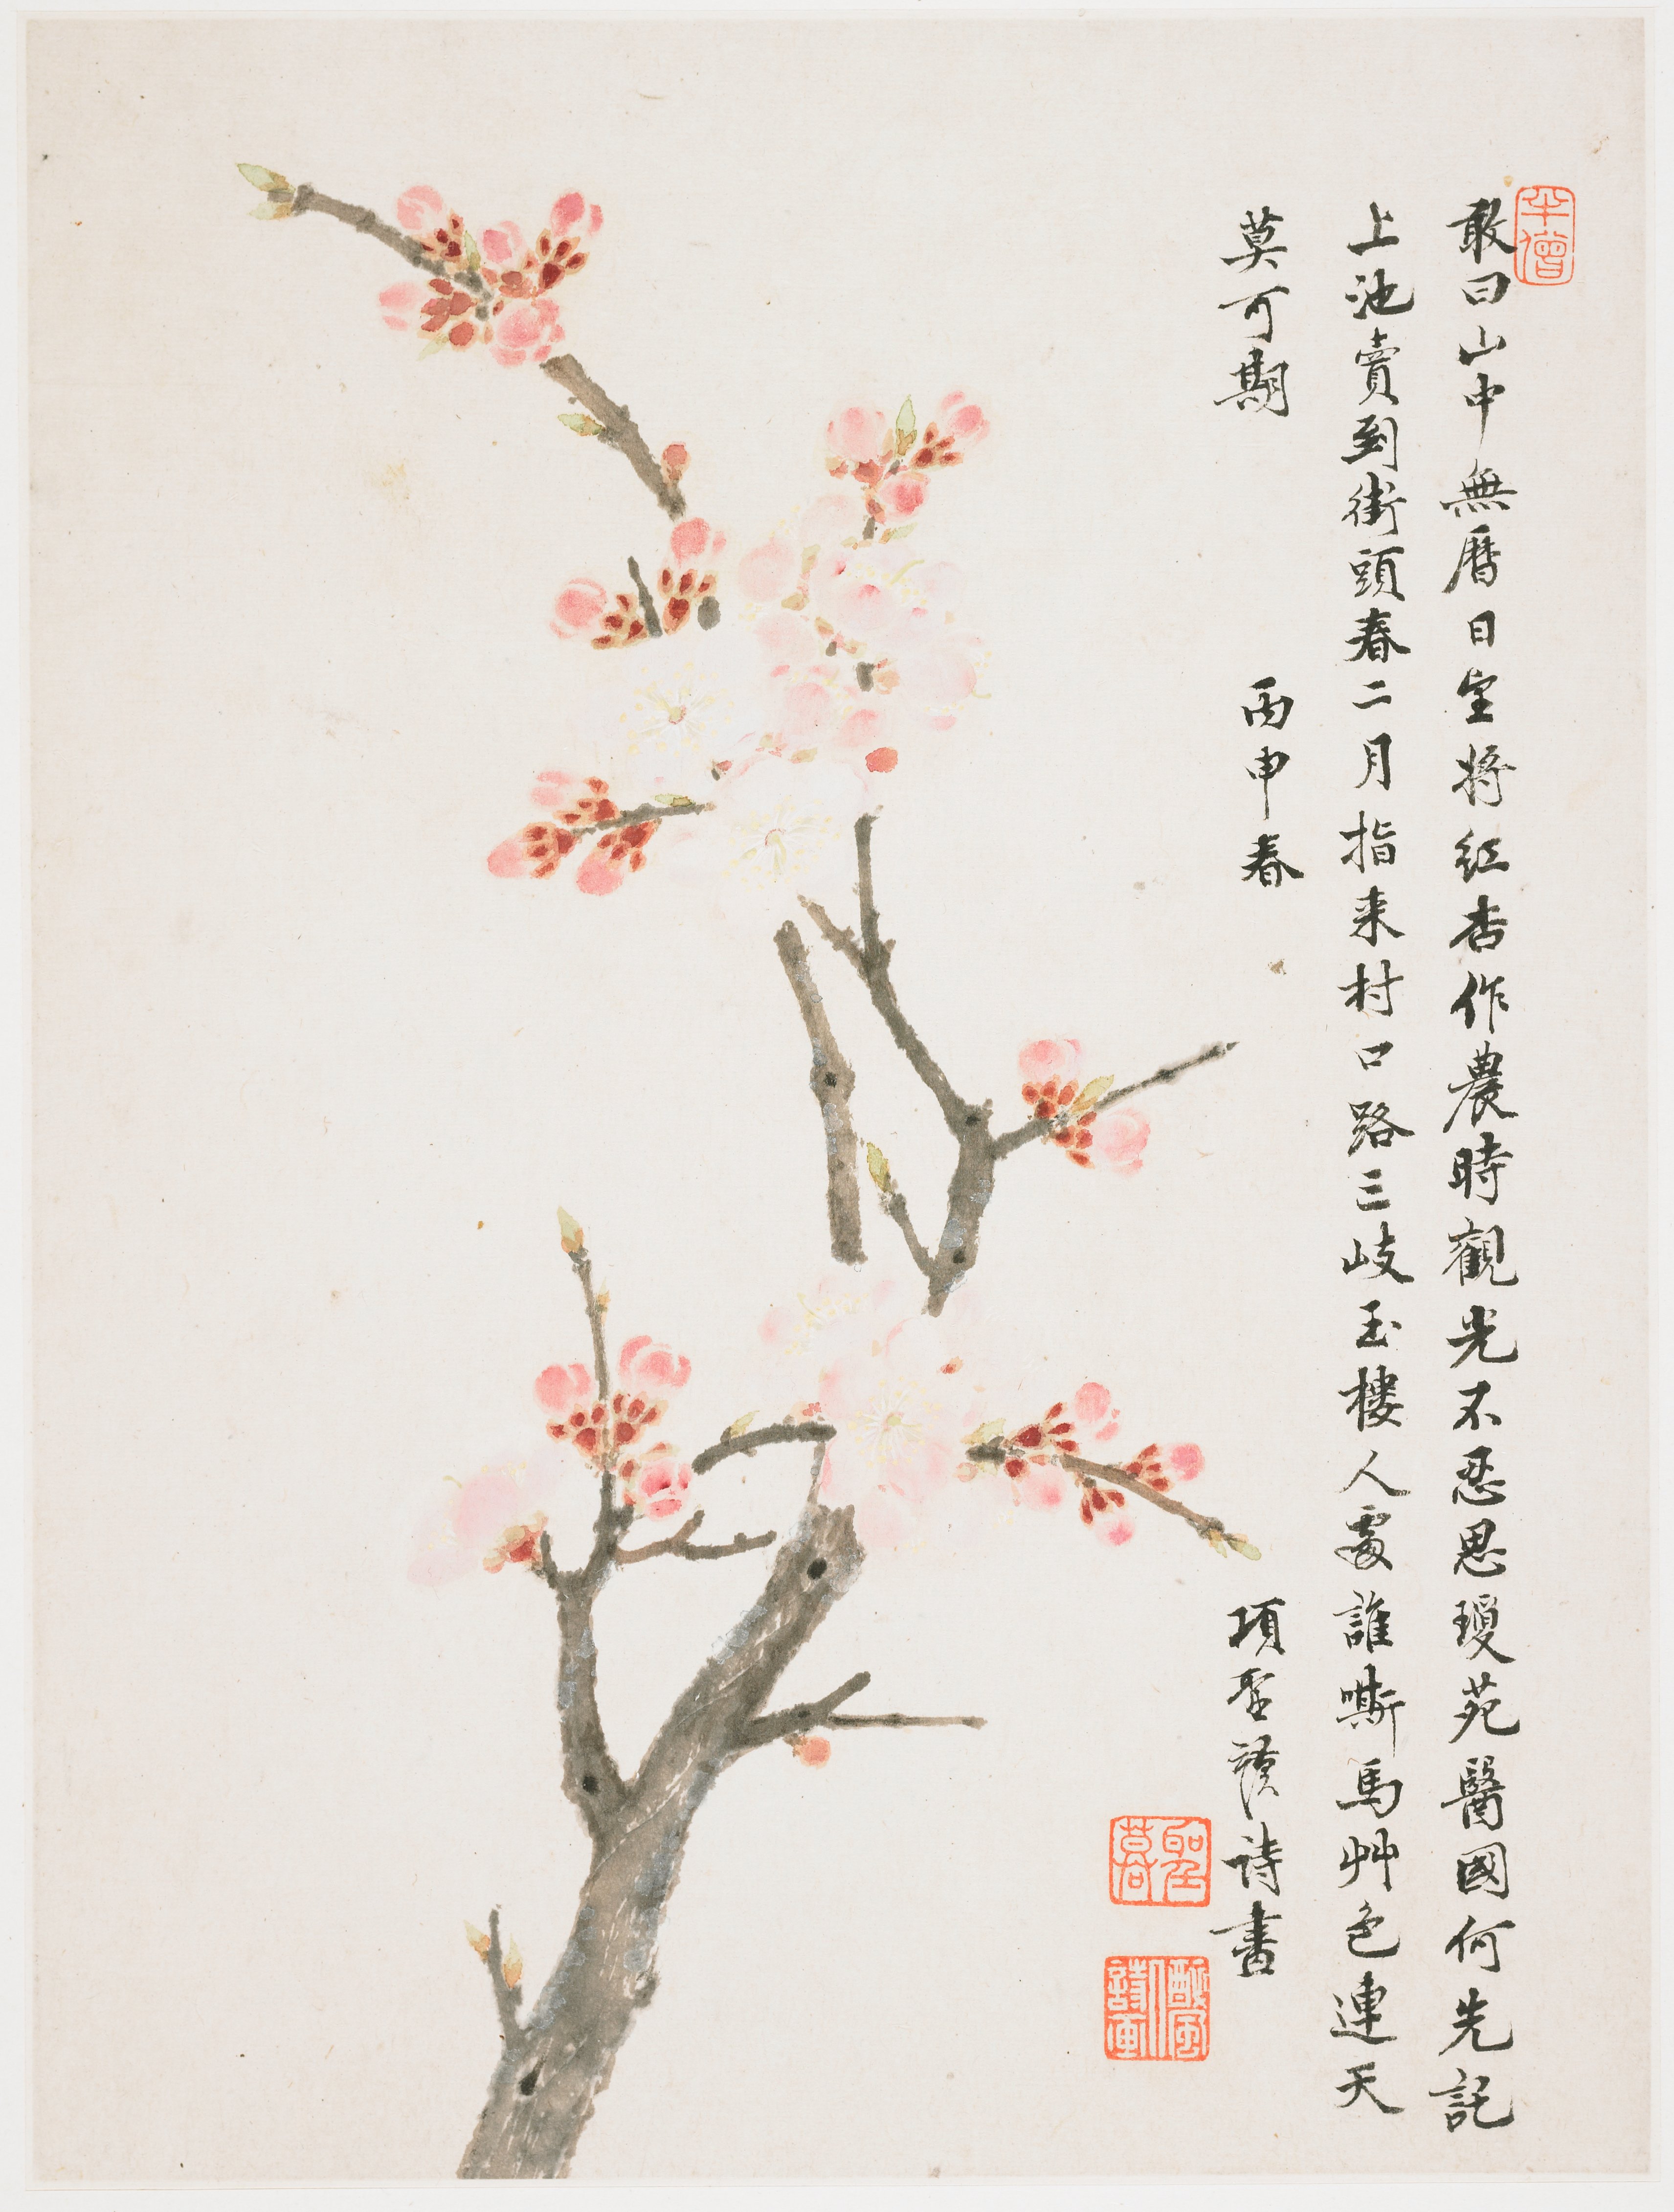 敢曰山中無曆日空將紅杏作農時觀光不忍思瓊苑醫國何先託
上池賣到街頭春二月指来村口路三岐玉樓人處誰嘶馬艸色連天
莫可期
丙申春
項聖謨詩畫
半僧
聖謨